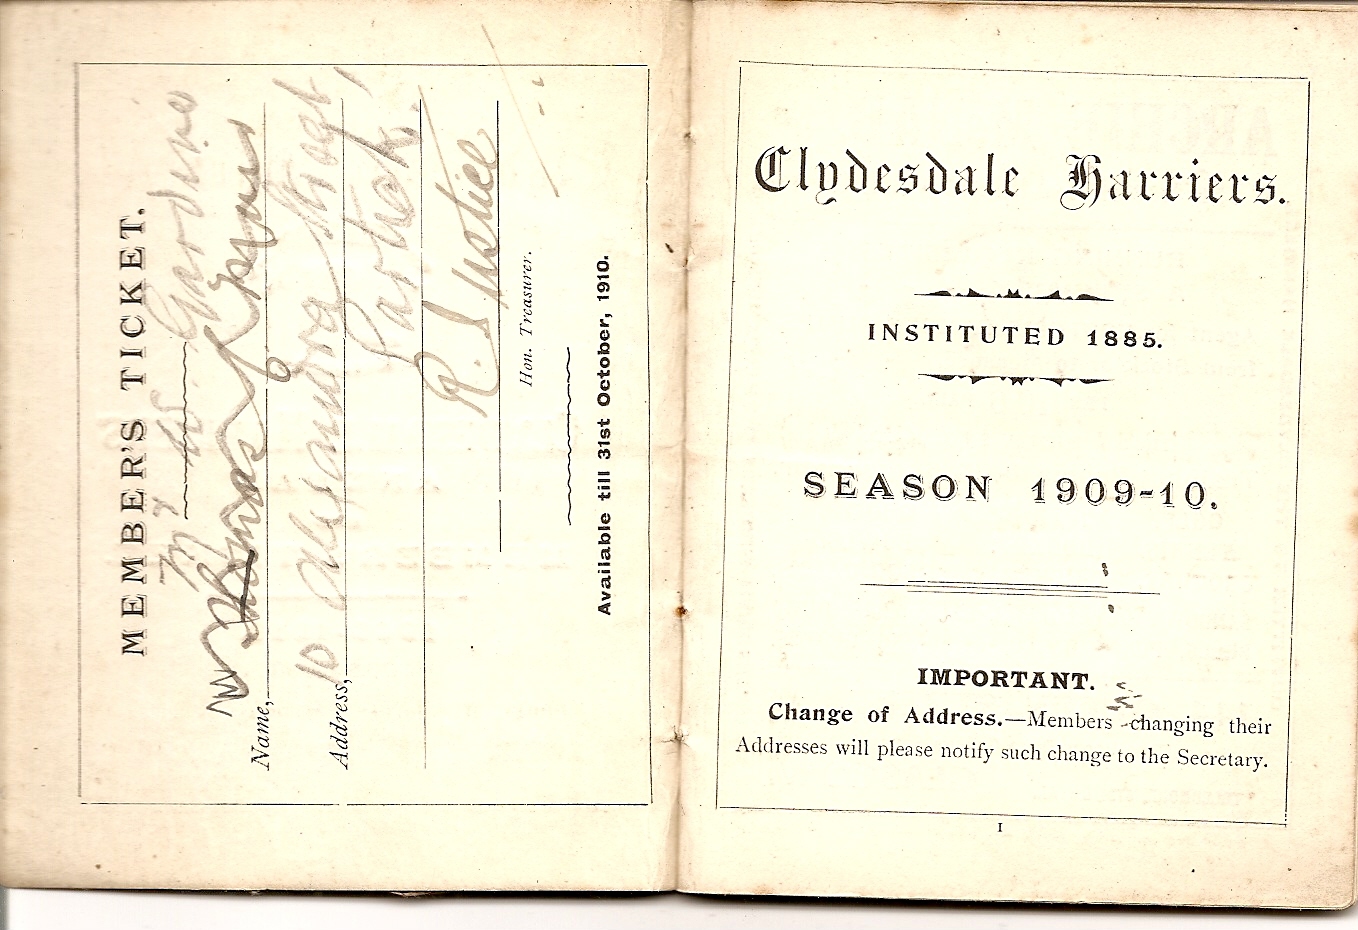 MEMBER'S TICKET.
Name,
Address, 10 Street,
Partick.
R. Justice
Hon. Treasurer.
Available till 31st October, 1910.
Clydesdale Harriers.
INSTITUTED 1885.
SEASON 1909-10.
IMPORTANT.
Change of Address.—Members changing their
Addresses will please notify such change to the Secretary.
1